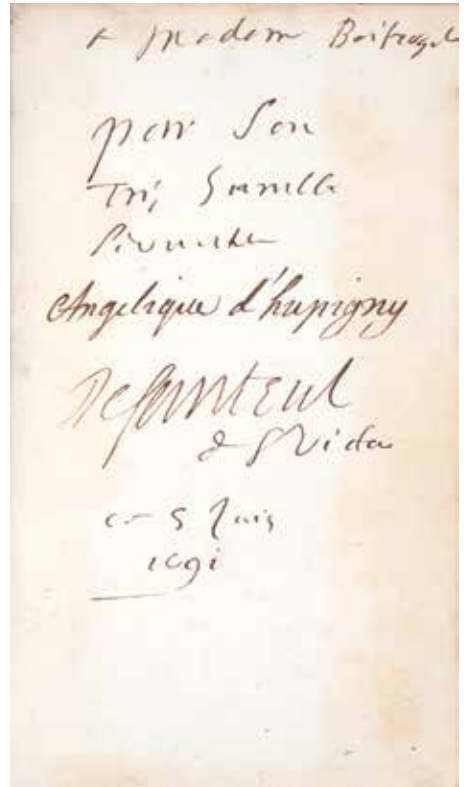 a madam
par Son
Tri, humble
Serviteur
Angelique d'hupigny
De Santeul
de St Victor
ce 5 Juin
1691